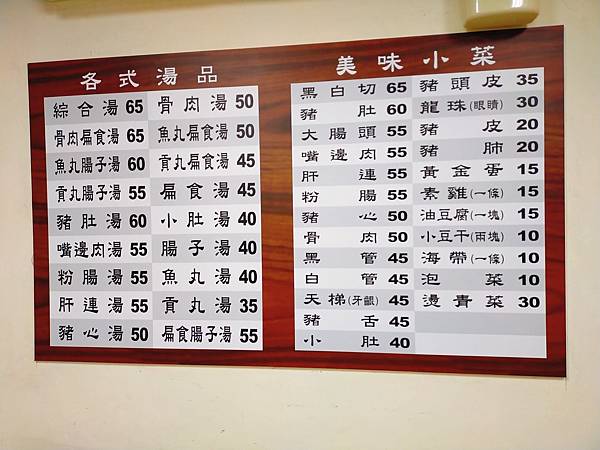 各式湯品
綜合湯 65 骨肉湯 50
骨肉扁食湯 65 魚丸扁食湯 50
魚丸腸子湯 60 貢丸扁食湯 45
貢丸腸子湯 55 扁食湯 45
豬肚湯 60 小肚湯 40
嘴邊肉湯 55 腸子湯 40
粉腸湯 55 魚丸湯 40
肝連湯 55 貢丸湯 35
豬心湯 50 扁食腸子湯 55
美味小菜
黑白切 65 豬頭皮 35
豬肚 60 龍珠(眼睛) 30
大腸頭 55 豬皮 20
嘴邊肉 55 豬肺 20
肝連 55 黃金蛋 15
粉腸 55 素雞(一條) 15
豬心 50 油豆腐(一塊) 15
骨肉 50 小豆干(兩塊) 10
黑管 45 海帶(一條) 10
白管 45 泡菜 10
天梯(牙齦) 45 燙青菜 30
豬舌 45
小肚 40